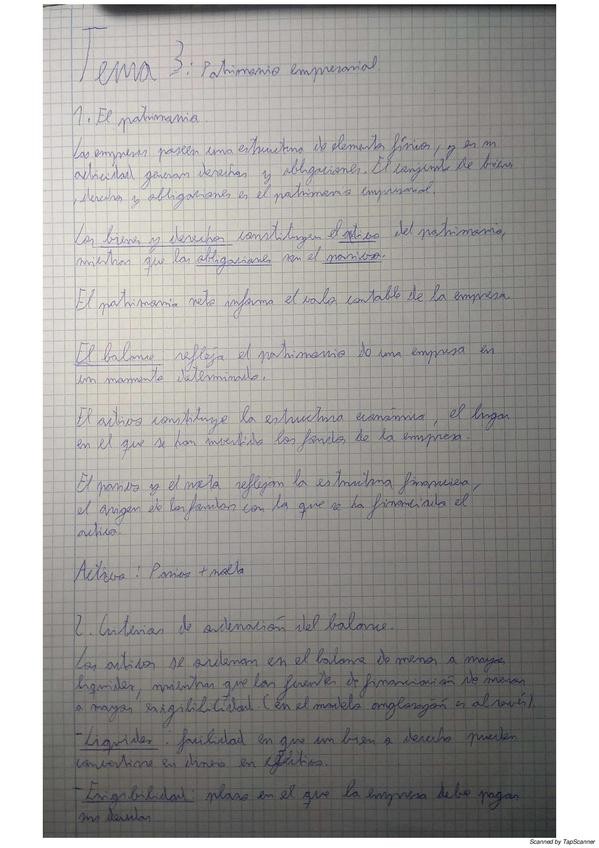 Tema 3: Patrimonio empresarial
1. El patrimonio
Las empresas poseen una estructura de elementos físicos, y en su
actividad generan derechos y obligaciones. El conjunto de bienes
, derechos y obligaciones es el patrimonio empresarial.
Los bienes y derechos constituyen el activo del patrimonio,
mientras que las obligaciones son el pasivo.
El patrimonio neto informa el valor contable de la empresa
El balance refleja el patrimonio de una empresa en
un momento determinado.
El activo constituye la estructura económica, el lugar
en el que se han invertido los fondos de la empresa.
El pasivo y el neto reflejan la estructura financiera,
el origen de los fondos con la que se ha financiado el
activo.
Activo: Pasivo + neto
2. Criterios de ordenación del balance.
Los activos se ordenan en el balance de menor a mayor
liquidez, mientras que las fuentes de financiación de menor
a mayor exigibilidad (en el modelo anglosajón es al revés).
- Liquidez: facilidad en que un bien o derecho pueden
convertirse en dinero en efectivo.
- Exigibilidad: plazo en el que la empresa debe pagar
sus deudas
Scanned by TapScanner